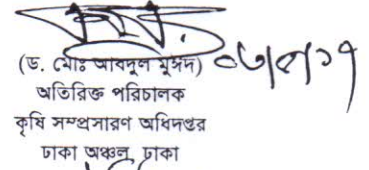 (ড. মোঃ আবদুল মুঈদ)
অতিরিক্ত পরিচালক
কৃষি সম্প্রসারণ অধিদপ্তর
ঢাকা অঞ্চল, ঢাকা